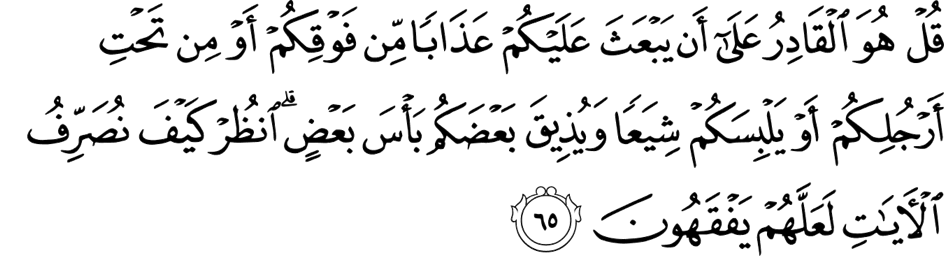 قُلْ هُوَ ٱلْقَادِرُ عَلَىٰٓ أَن يَبْعَثَ عَلَيْكُمْ عَذَابًا مِّن فَوْقِكُمْ أَوْ مِن تَحْتِ
أَرْجُلِكُمْ أَوْ يَلْبِسَكُمْ شِيَعًا وَيُذِيقَ بَعْضَكُم بَأْسَ بَعْضٍ ۗ ٱنظُرْ كَيْفَ نُصَرِّفُ
ٱلْأَيَـٰتِ لَعَلَّهُمْ يَفْقَهُونَ ٦٥